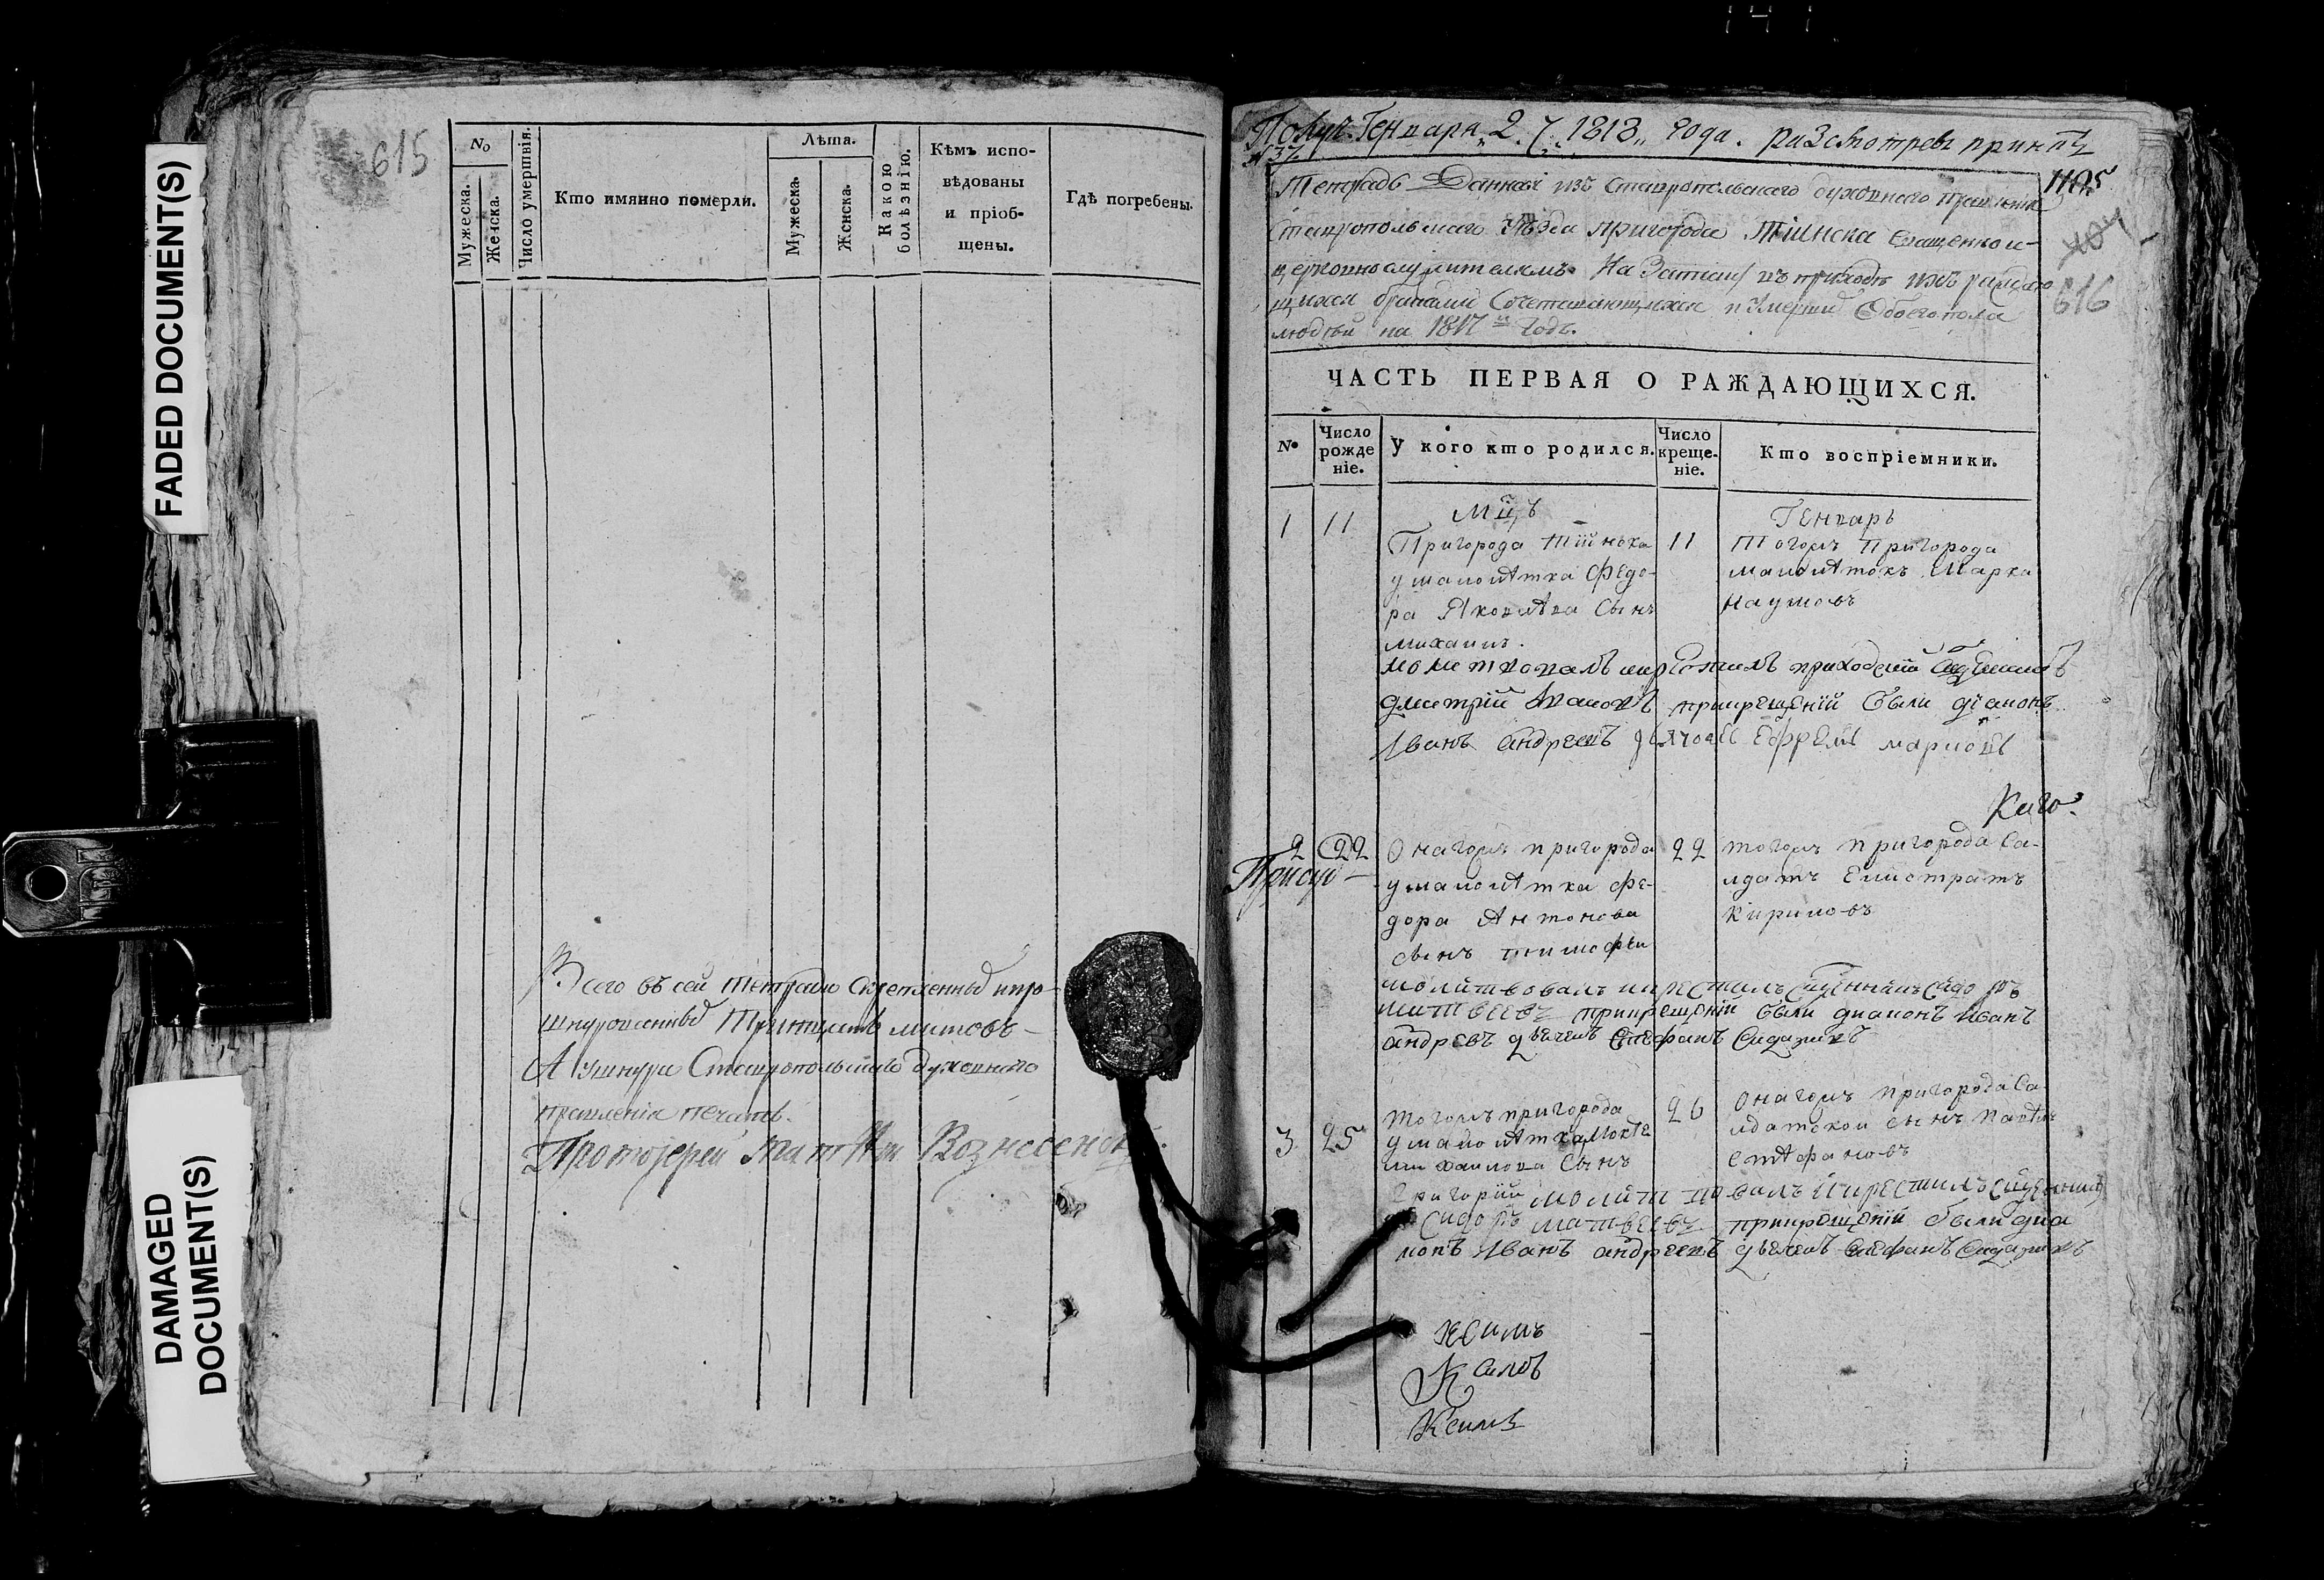 FADED DOCUMENT(S)
DAMAGED
DOCUMENT(S)
615
No
Мужеска.
Женска.
Число умертвія.
Кто имянно померли.
Лѣта.
Мужеска.
Женска.
Какою
болѣзнію.
Кѣмъ испо-
вѣдованы
и пріоб-
щены.
Гдѣ погребены.
Всего въ сей тетради скрепленныхъ
тритцать листовъ
А у шнура Ставропольскаго духовнаго
правленія печать.
Протоіерей Матѳѣй Вознесенскій.
Получ. Генваря 2 1818 года. разсмотревъ принять
N 37.
1195
Тетрадь Данная изъ Ставропольскаго духовнаго правленія
Ставропольскаго уѣзда пригорода Тіинска священно и
церковнослужителямъ На записку въ приходе ихъ раждаю
щихся браками Сочетавающихся и умершихъ Обоего пола
людей на 1817й годъ.
616
ЧАСТЬ ПЕРВАЯ О РАЖДАЮЩИХСЯ.
No
Число
рожде
ніе.
У кого кто родился.
Число
креще-
ніе.
Кто воспріемники.
Мцъ
Генварь
1 11
Пригорода Тіинска
у малолѣтка Федо-
ра Яковлева сынъ
михаилъ.
11
Тогожъ Пригорода
малолѣтокъ Марка
Наумовъ
молитвовалъ и крестилъ приходскій
дмитрій при крещеніи были діаконъ
Иванъ андреевъ дьячокъ Ефремъ
2 22
Онагожъ пригорода
у малолѣтка Фе-
дора Антонова
сынъ тимофеи
22
тогожъ пригорода Са-
лдатъ Елистратъ
Кириловъ
молитвовалъ и крестилъ сидоръ
матвеевъ при крещеніи были диаконъ иванъ
андревъ дьячекъ Стефанъ
3 25
Тогожъ пригорода
у малолѣтка
михаилова сынъ
Григорій
26
Онагожъ пригорода Са-
лдатской сынъ Павелъ
Стефановъ
молитвовалъ и крестилъ
сидоръ матвеевъ при крещеніи были диа
конъ Иванъ андреевъ дьячекъ Стефанъ